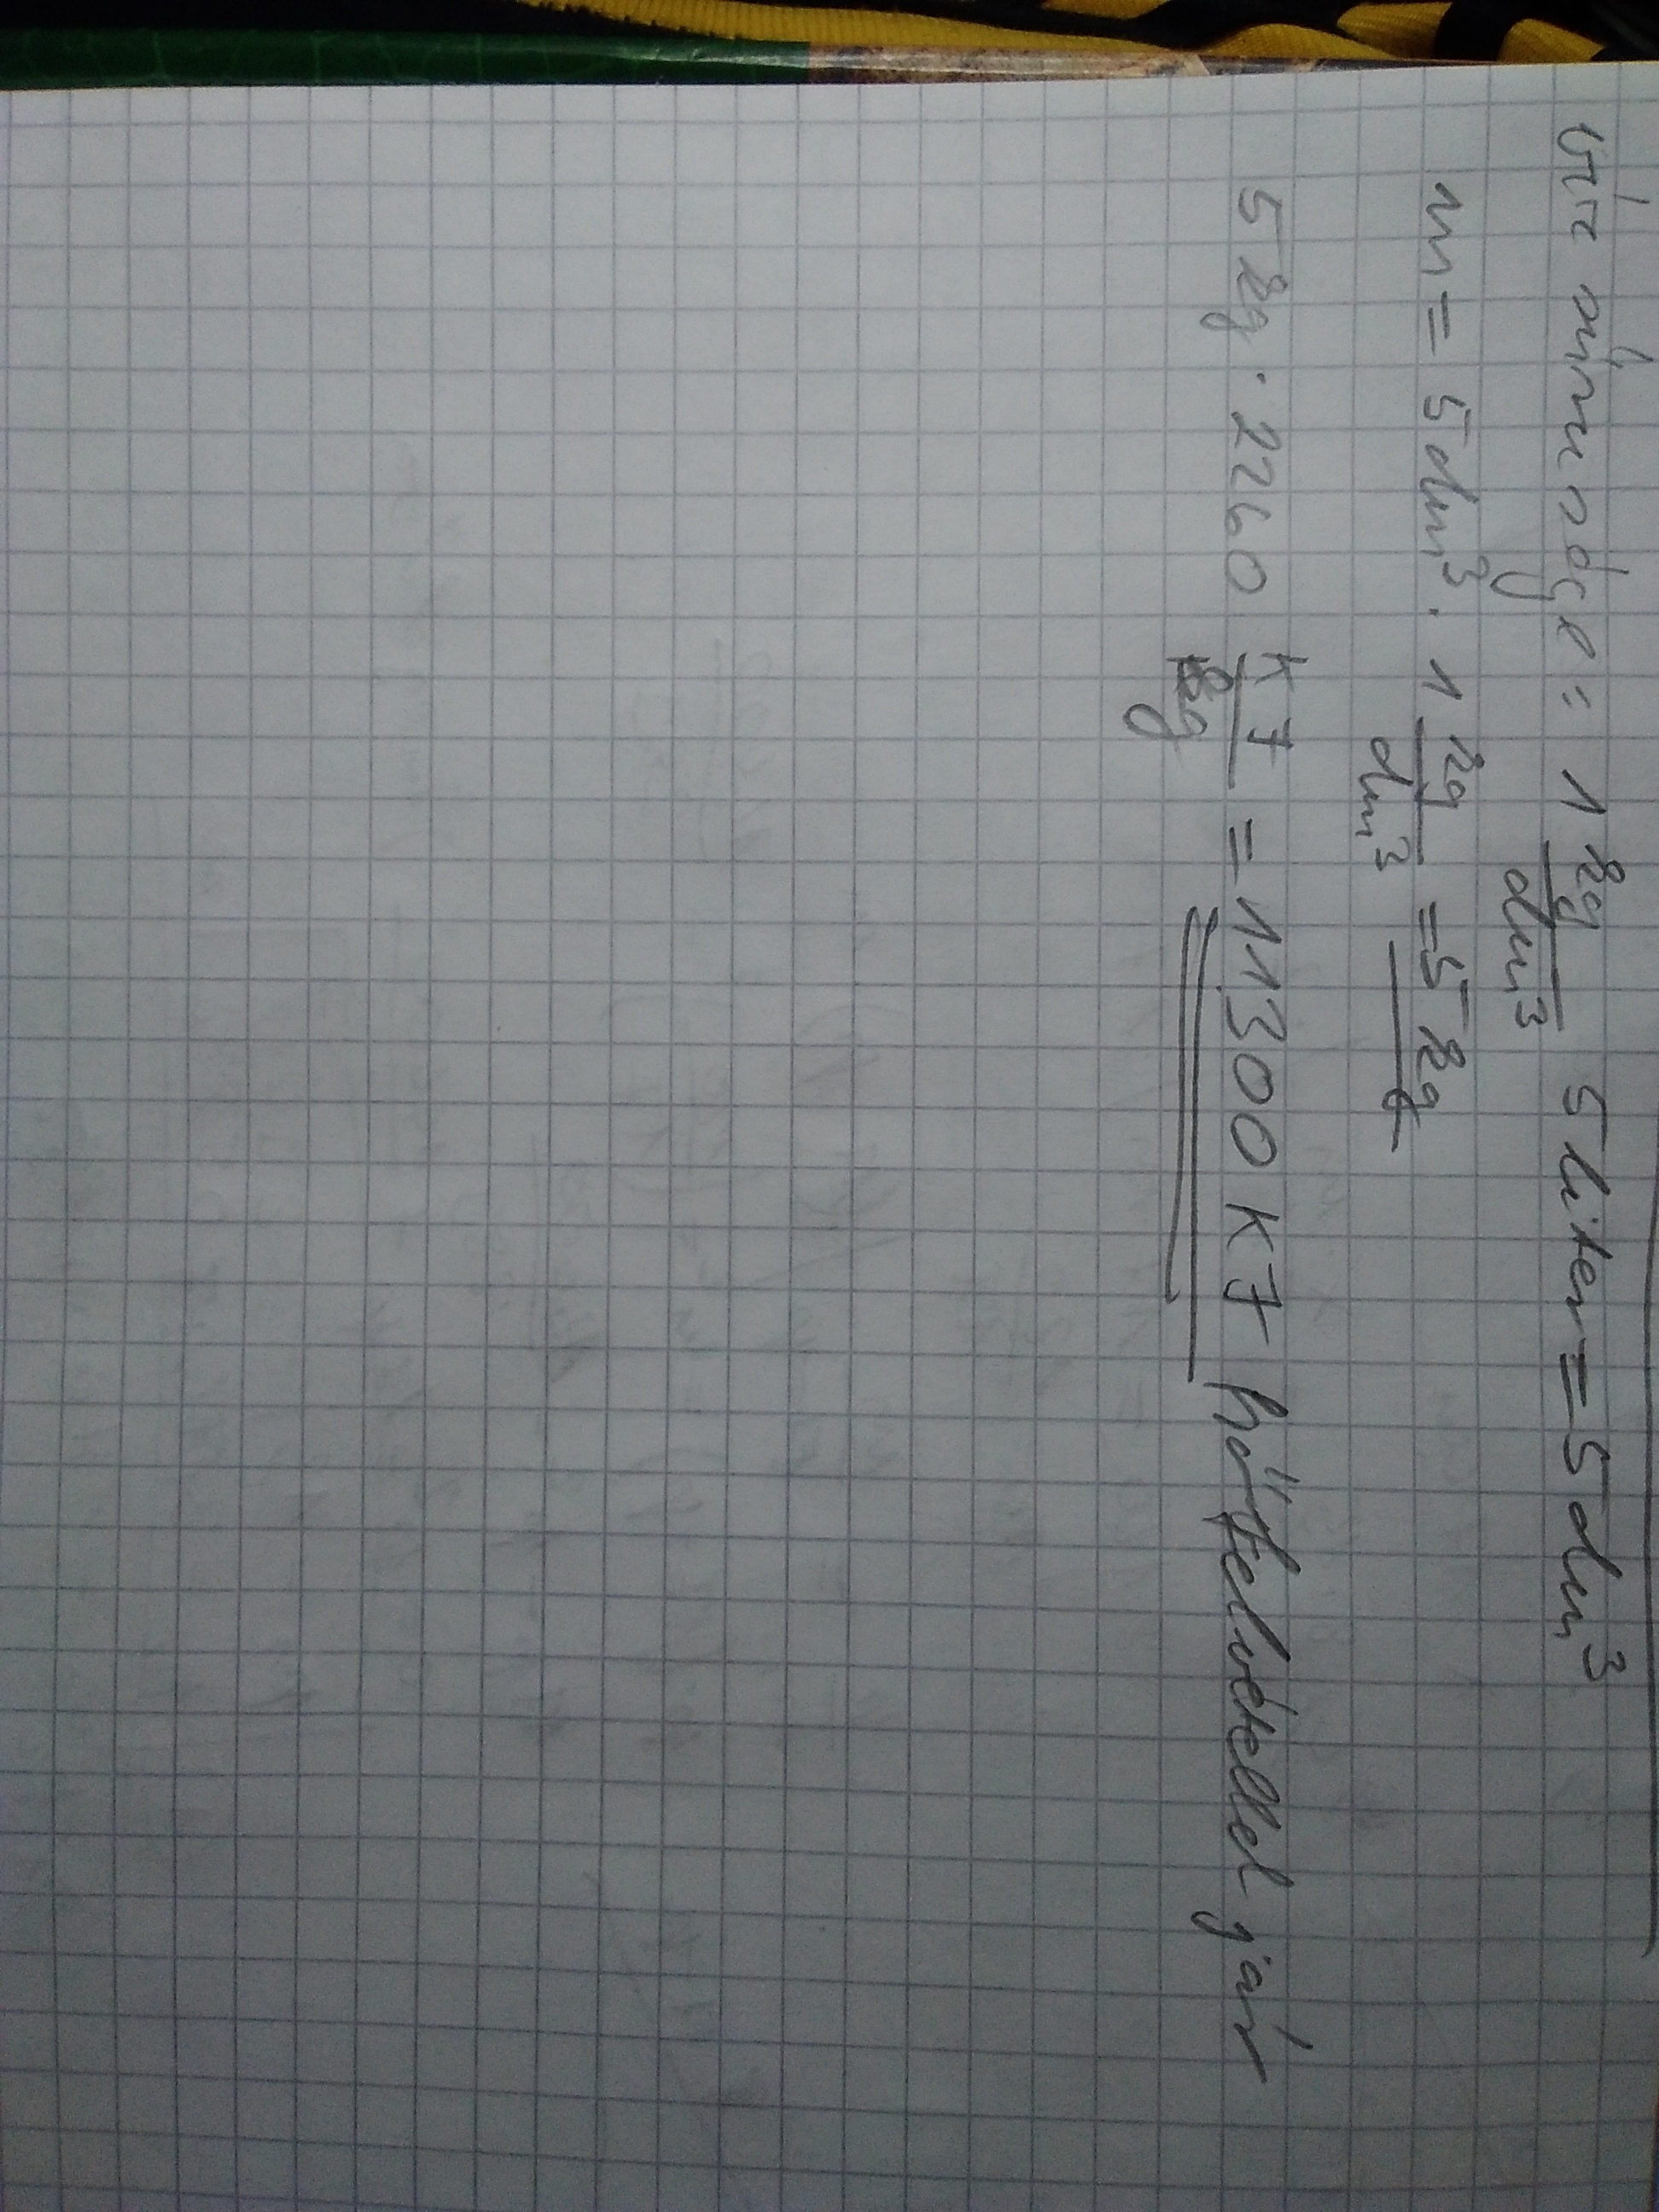 víz sűrűsége = 1 kg/dm³ 5 liter = 5 dm³
m = 5 dm³ · 1 kg/dm³ = 5 kg
5 kg · 2260 kJ/kg = 11300 kJ hőfelvétellel jár